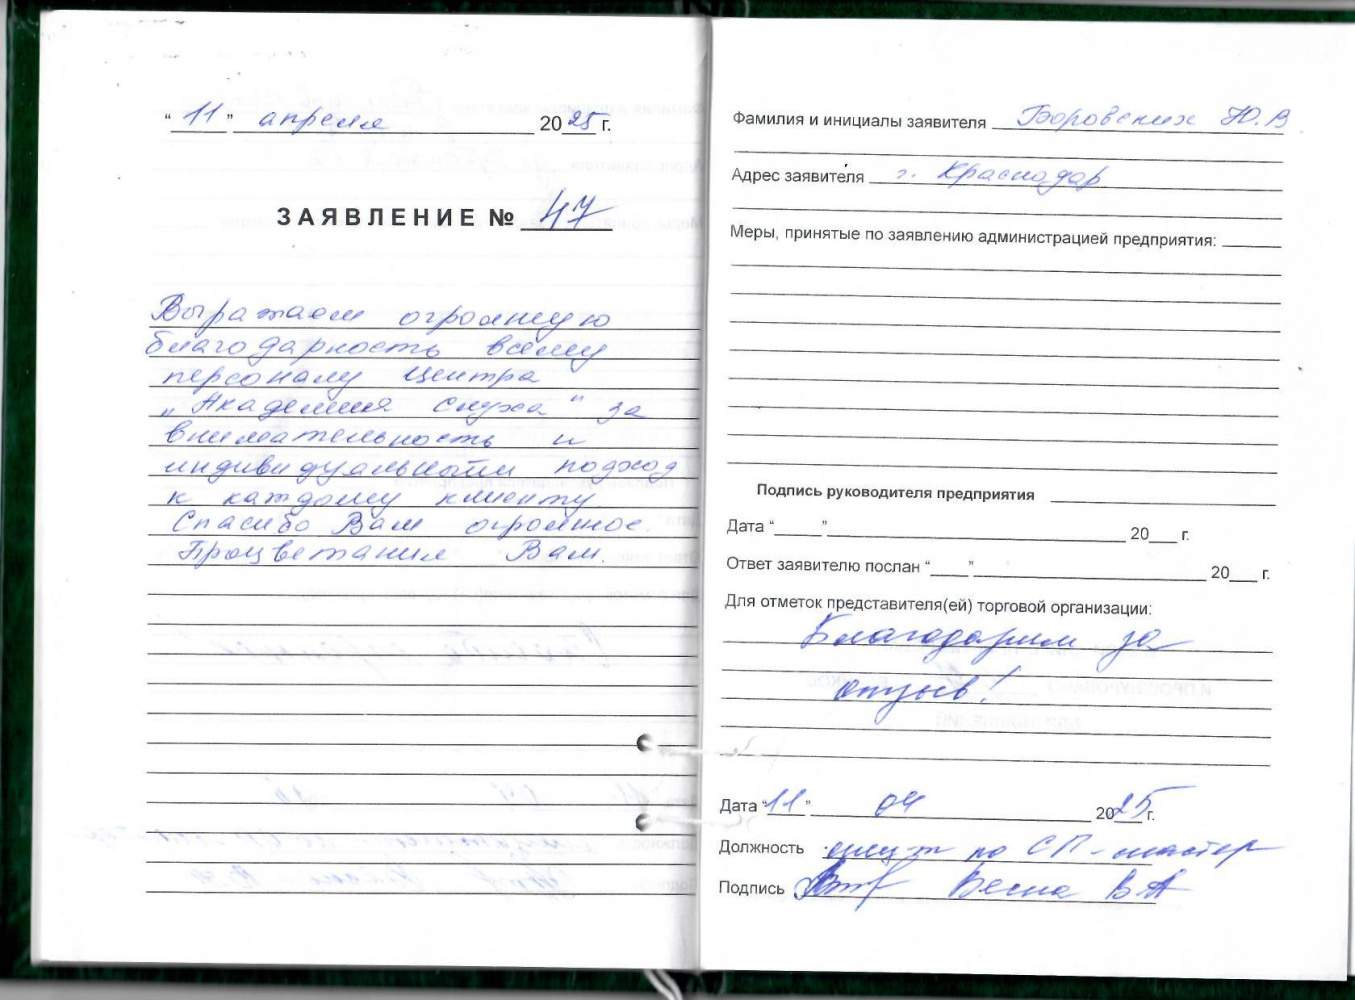 “ 11 ” апреля 2025 г.
ЗАЯВЛЕНИЕ № 47
Выражаем огромную
благодарность всему
персоналу Центра
„Академия слуха“ за
внимательность и
индивидуальный подход
к каждому клиенту.
Спасибо Вам огромное.
Процветания Вам.
Фамилия и инициалы заявителя Боровских Ю.В
Адрес заявителя г. Краснодар
Меры, принятые по заявлению администрацией предприятия:
Подпись руководителя предприятия
Дата “ ” 20 г.
Ответ заявителю послан “ ” 20 г.
Для отметок представителя(ей) торговой организации:
Благодарим за
отзыв!
Дата “11” 04 2025 г.
Должность по СП-мастер
Подпись Весна В.А